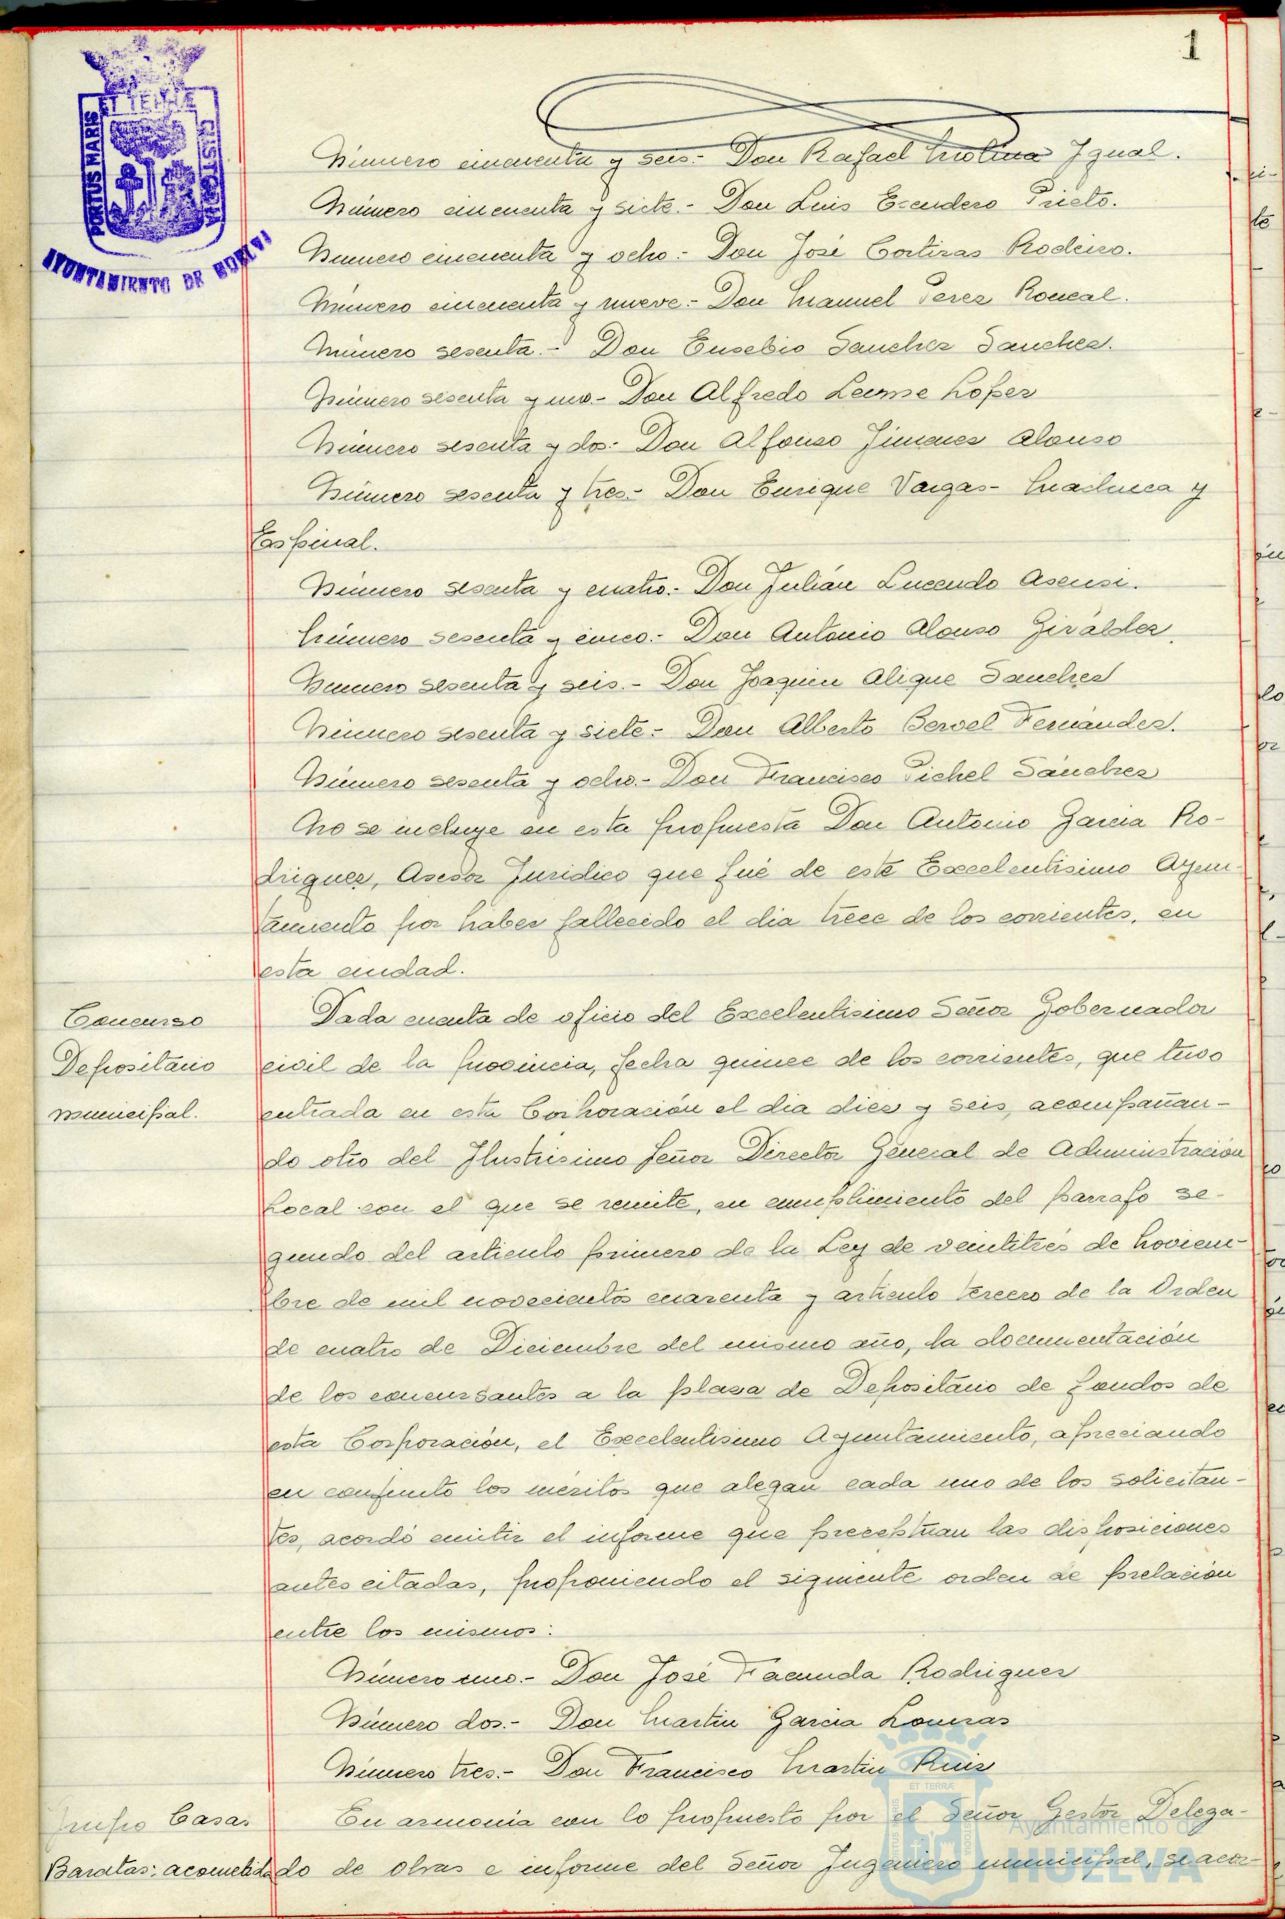 1
PORTUS MARIS ET TERRÆ CUSTODIA
AYUNTAMIENTO DE HUELVA
Número cincuenta y seis.- Don Rafael Molina Igual.
Número cincuenta y siete.- Don Luis Escudero Prieto.
Número cincuenta y ocho.- Don José Cortizas Rodeiro.
Número cincuenta y nueve.- Don Manuel Perez Roncal.
Número sesenta.- Don Eusebio Sanchez Sanchez.
Número sesenta y uno.- Don Alfredo Lopez
Número sesenta y dos.- Don Alfonso Jimenez Alonso
Número sesenta y tres.- Don Enrique Vargas- Machuca y
Espinal.
Número sesenta y cuatro.- Don Julián Lucendo Asensi.
Número sesenta y cinco.- Don Antonio Alonso Giráldez.
Numero sesenta y seis.- Don Joaquin Alique Sanchez
Número sesenta y siete.- Don Alberto Bervel Fernández.
Número sesenta y ocho.- Don Francisco Pichel Sánchez
No se incluye en esta propuesta Don Antonio Garcia Ro-
driguez, Asesor Juridico que fué de este Excelentísimo Ayun-
tamiento por haber fallecido el dia trece de los corrientes, en
esta ciudad.
Concurso
Depositario
municipal.
Dada cuenta de oficio del Excelentisimo Señor Gobernador
civil de la provincia, fecha quince de los corrientes, que tuvo
entrada en esta Corporación el dia diez y seis, acompañan-
do otro del Ilustrisimo Señor Director General de Administración
Local con el que se remite, en cumplimiento del parrafo se-
gundo del articulo primero de la Ley de veintitrés de Noviem-
bre de mil novecientos cuarenta y articulo tercero de la Orden
de cuatro de Diciembre del mismo año, la documentación
de los concursantes a la plaza de Depositario de fondos de
esta Corporación, el Excelentisimo Ayuntamiento, apreciando
en conjunto los méritos que alegan cada uno de los solicitan-
tes, acordó emitir el informe que preceptúan las disposiciones
antes citadas, proponiendo el siguiente orden de prelación
entre los mismos:
Número uno.- Don José Facunda Rodriguez
Número dos.- Don Martin Garcia Lomas
Número tres.- Don Francisco Martin Ruiz
Grupo Casas
Baratas: acometida
En armonía con lo propuesto por el Señor Gestor Delega-
do de Obras e informe del Señor Ingeniero municipal, se acor-
Ayuntamiento de
HUELVA